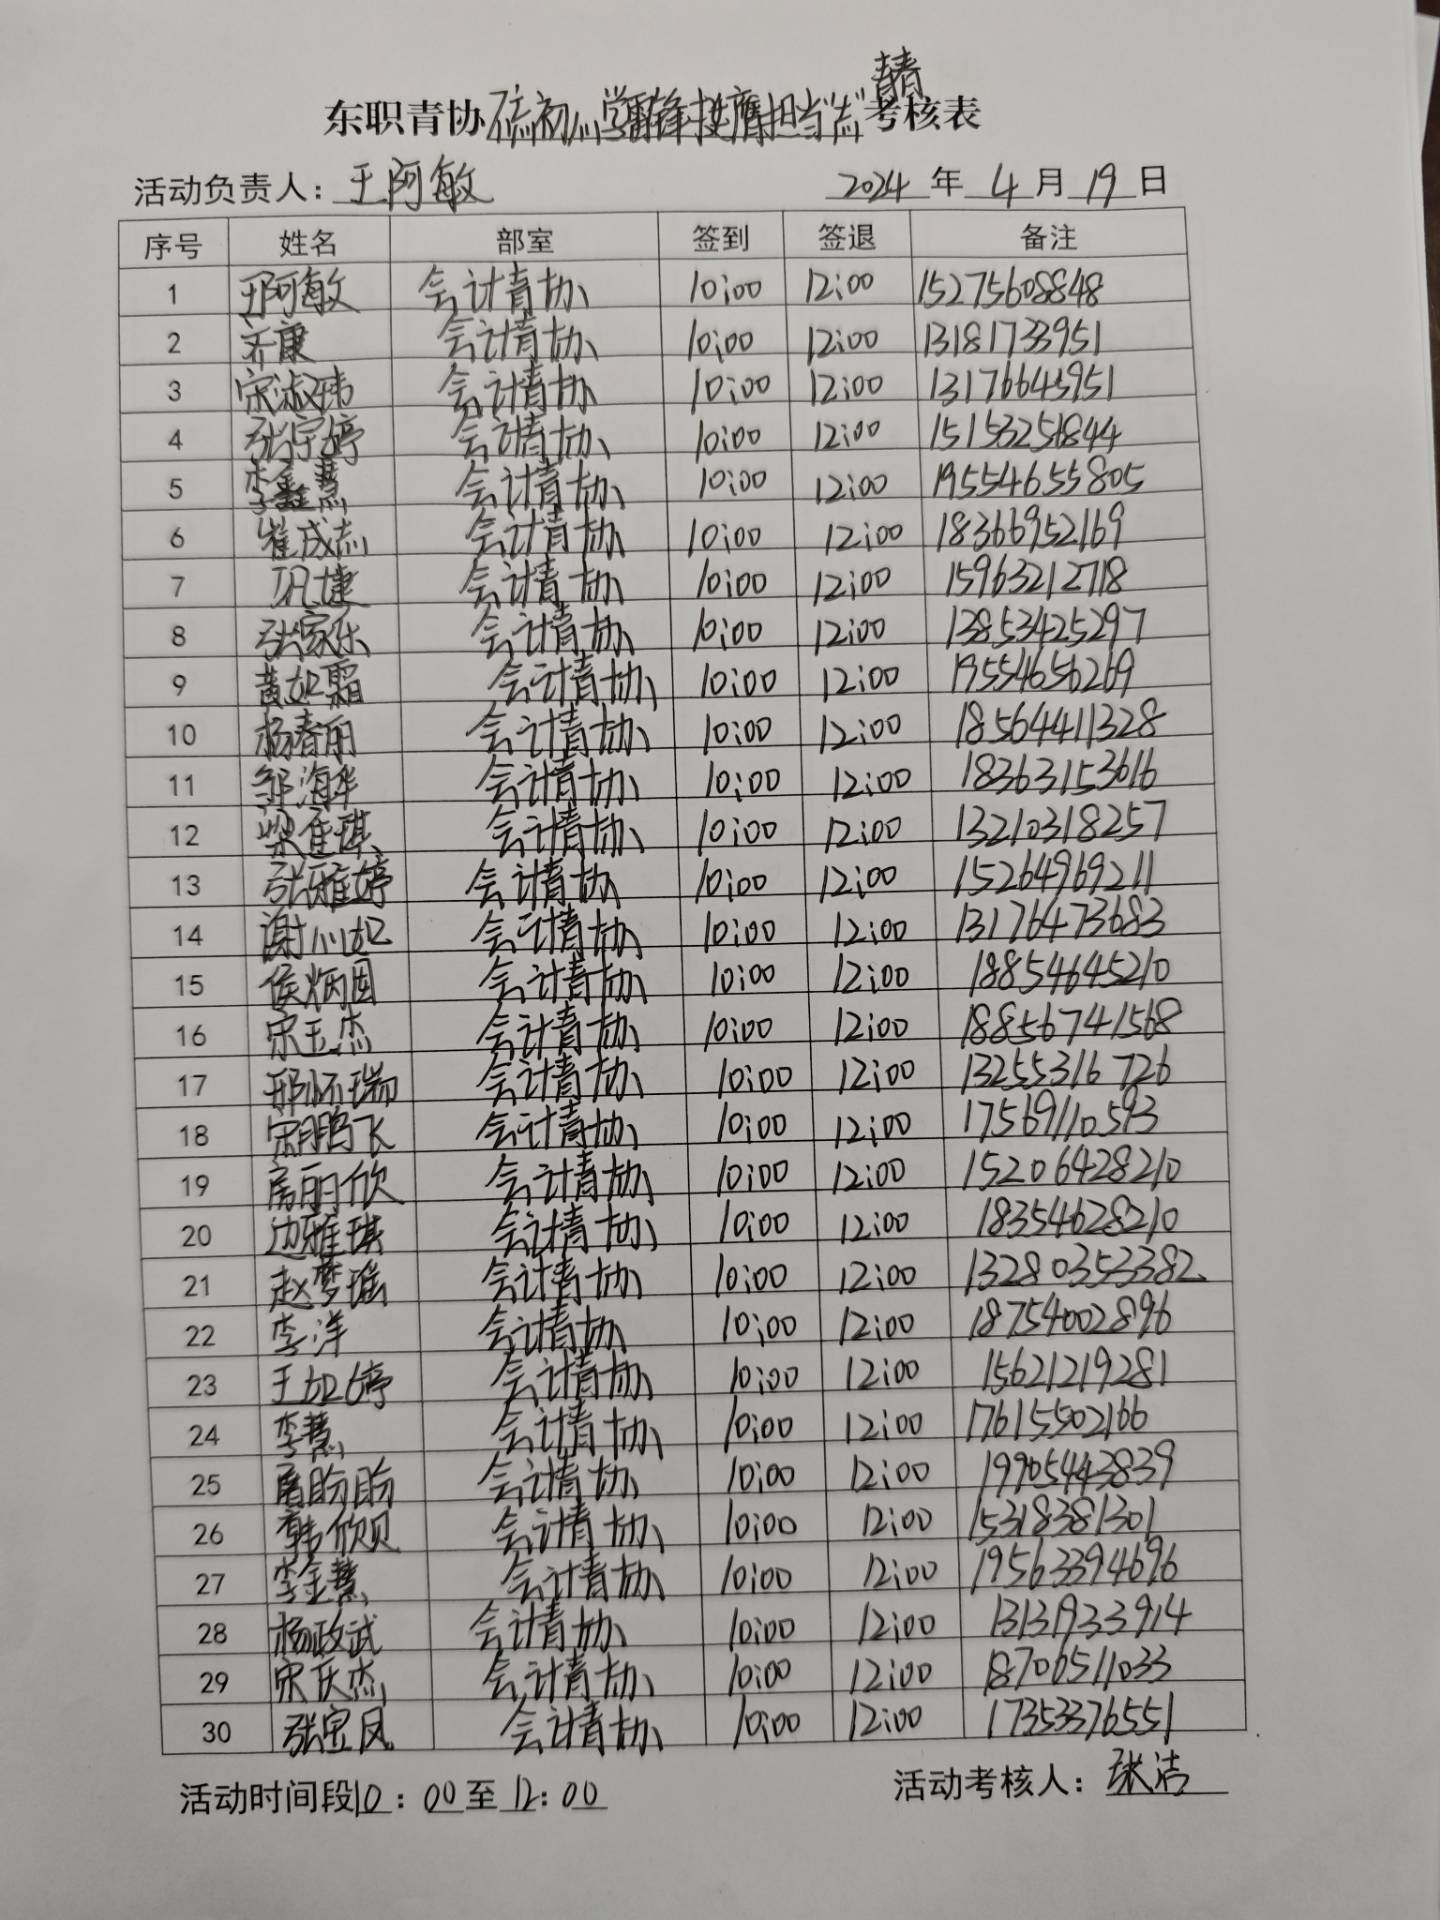 青春
东职青协 初心学雷锋 担当"志" 考核表
活动负责人：王阿敏 2024 年 4 月 19 日
序号 姓名 部室 签到 签退 备注
1 王阿敏 会计青协 10:00 12:00 15275608848
2 齐康 会计青协 10:00 12:00 13181733951
3 宋淑玮 会计青协 10:00 12:00 13176645951
4 张宇婷 会计青协 10:00 12:00 15153256844
5 李鑫慧 会计青协 10:00 12:00 19554655805
6 崔成志 会计青协 10:00 12:00 18366952169
7 巩捷 会计青协 10:00 12:00 15963212718
8 张家乐 会计青协 10:00 12:00 13853425297
9 黄如霜 会计青协 10:00 12:00 19554656269
10 杨春丽 会计青协 10:00 12:00 18564411328
11 邹海华 会计青协 10:00 12:00 18363153616
12 梁隹琪 会计青协 10:00 12:00 13210318257
13 张雅婷 会计青协 10:00 12:00 15264969211
14 谢川如 会计青协 10:00 12:00 13176473683
15 侯炳囡 会计青协 10:00 12:00 18854645210
16 宋玉杰 会计青协 10:00 12:00 18856741568
17 邢怀瑞 会计青协 10:00 12:00 13255316726
18 宋鹏飞 会计青协 10:00 12:00 17569110593
19 房丽欣 会计青协 10:00 12:00 15206428210
20 边雅琪 会计青协 10:00 12:00 18354628210
21 赵梦瑶 会计青协 10:00 12:00 13280353382
22 李洋 会计青协 10:00 12:00 18754002896
23 王如婷 会计青协 10:00 12:00 15621219281
24 李慧 会计青协 10:00 12:00 17615502166
25 盼盼 会计青协 10:00 12:00 19905443839
26 韩欣贝 会计青协 10:00 12:00 15318381301
27 李金慧 会计青协 10:00 12:00 19563394696
28 杨政武 会计青协 10:00 12:00 13131933914
29 宋庆杰 会计青协 10:00 12:00 18706511033
30 张宝凤 会计青协 10:00 12:00 17353376551
活动时间段10：00至12：00 活动考核人：张洁